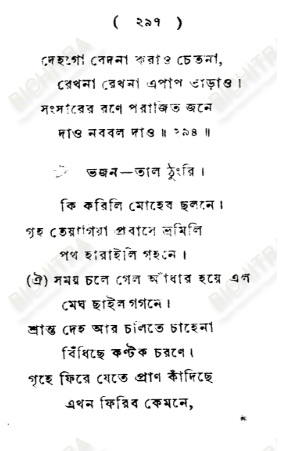 ( ২৯৭ )
দেহগো বেদনা করাও চেতনা,
রেখনা রেখনা এপাপ তাড়াও।
সংসারের রণে পরাজিত জনে
দাও নববল দাও ॥ ২৯৪ ॥
ভজন—তাল ঠুংরি।
কি করিলি মোহের ছলনে।
গৃহ তেয়াগিয়া প্রবাসে ভ্রমিলি
পথ হারাইলি গহনে।
(ঐ) সময় চলে গেল আঁধার হয়ে এল
মেঘ ছাইল গগনে।
শ্রান্ত দেহ আর চলিতে চাহেনা
বিঁধিছে কণ্টক চরণে।
গৃহে ফিরে যেতে প্রাণ কাঁদিছে
এখন ফিরিব কেমনে,